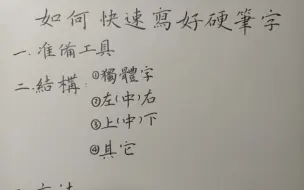 如何快速寫好硬筆字
一.准備工具
二.結構:①獨體字
②左(中)右
③上(中)下
④其它